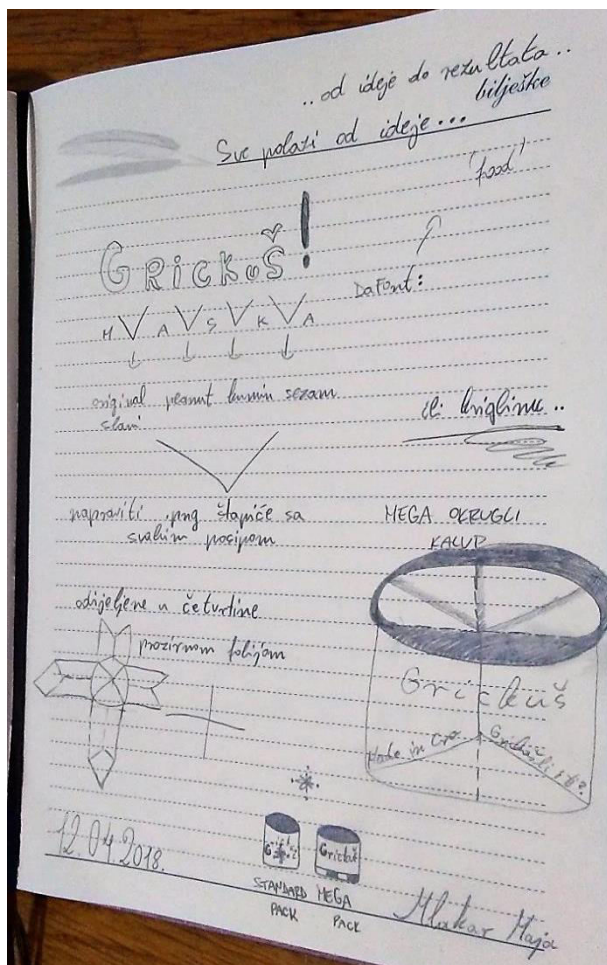 ..od ideje do rezultata..
bilješke
Sve polazi od ideje...
'food'
GRiCKuŠ!
DaFont:
M V A V S V K V A
original peanut kumin sezam
slani
ili kriglinu..
napraviti .png štapiće sa
svakim posipom
MEGA OKRUGLI
KALUP
odijeljene u četvrtine
prozirnom folijom
Grickuš
Made in Cro
Grickuš
12.04.2018.
STANDARD
PACK
MEGA
PACK
Mlakar Maja